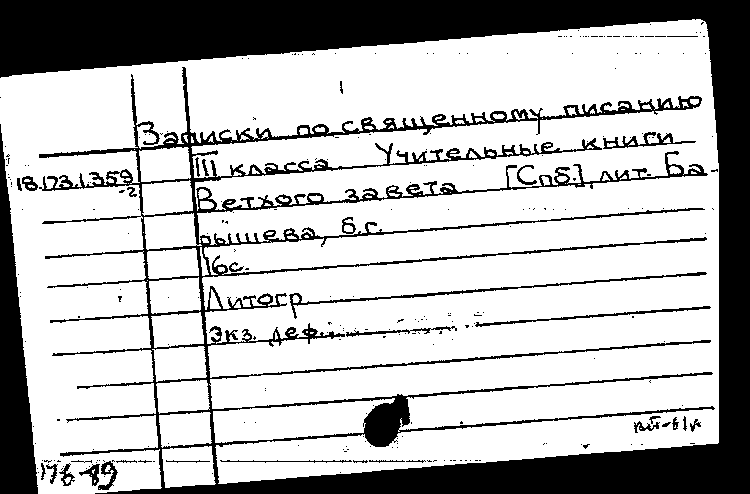 Записки по священному писанию
18.173.1.359 III класса. Учительные книги
-2
Ветхого завета. [Спб.], лит. Ба-
рышева, б.г.
16с.
Литогр.
Экз. деф.
176-89